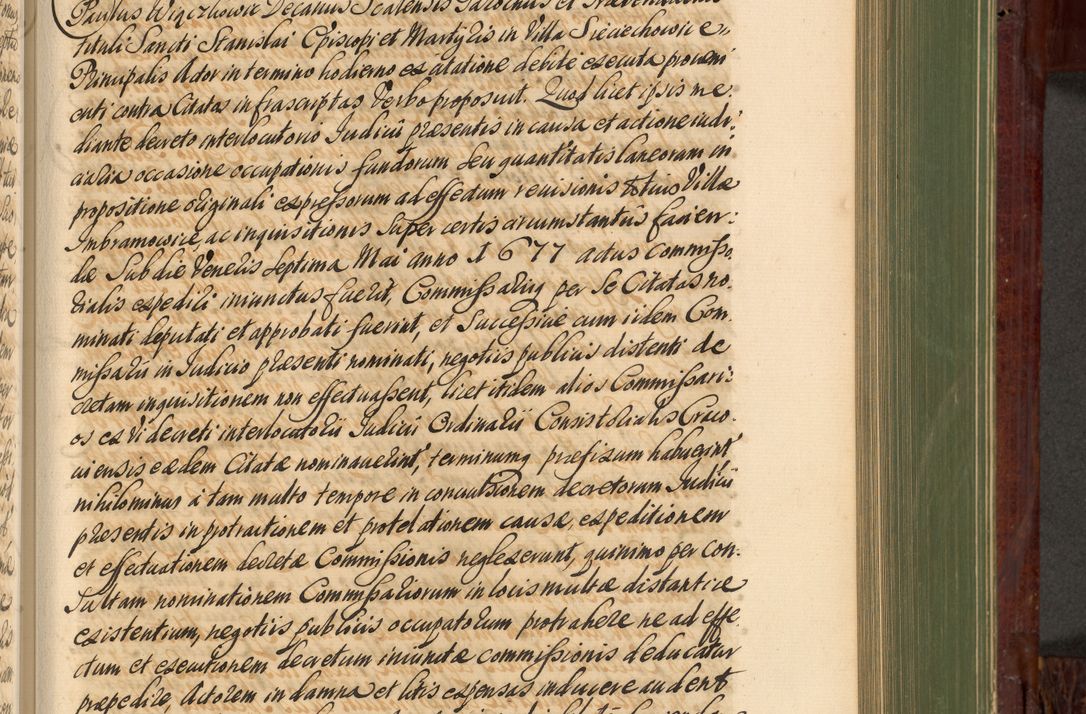 Paulus Decanus Scalensis Parochus et
tituli Sancti Stanislai Episcopi et Martyris in Villa Sieciechowice
Principalis Actor in termino hodierno ex citatione debite executa proveni
enti contra Citatas infrascriptas Verbo proposuit. Quod licet ipsis me
diante decreto interlocutorio Judicii præsentis in causa et actione iudi:
ciaria occasione occupationis fundorum seu quantitatis laneorum in
propositione originali expressorum ad effectum revisionis totius Villæ
Imbramowice, ac inquisitionis super certis circumstantiis facien:
dæ Sub die Veneris Septima Mai anno 1677 actus Commisso
rialis expediri iniunctus fuerit, Commissariiq per Se Citatas no.
minati deputati et approbati fuerint, et Successive cum iidem Com.
missarii in Judicio præsenti nominati, negotiis publicis distenti de
cretam inquisitionem non effectuassent, licet itidem alios Commissari:
os ex Vi decreti interlocutorii Judicii Ordinarii Consistorialis Craco.
viensis eædem Citatæ nominaverint, terminumq præfixum habuerint
nihilominus à tam multo tempore in convulsionem decretorum Judicii
præsentis in protractionem et protelationem causæ, expeditionem
et effectuationem decretæ Commissionis neglexerunt, quinimo per con:
sultam nominationem Commissariorum in locis multæ distantiæ
existentium, negotiis publicis occupatorum protrahere ne ad effe
ctum et executionem decretum iniunctæ commissionis deducatur
præpedire, Actorem in damna et litis expensas inducere audent